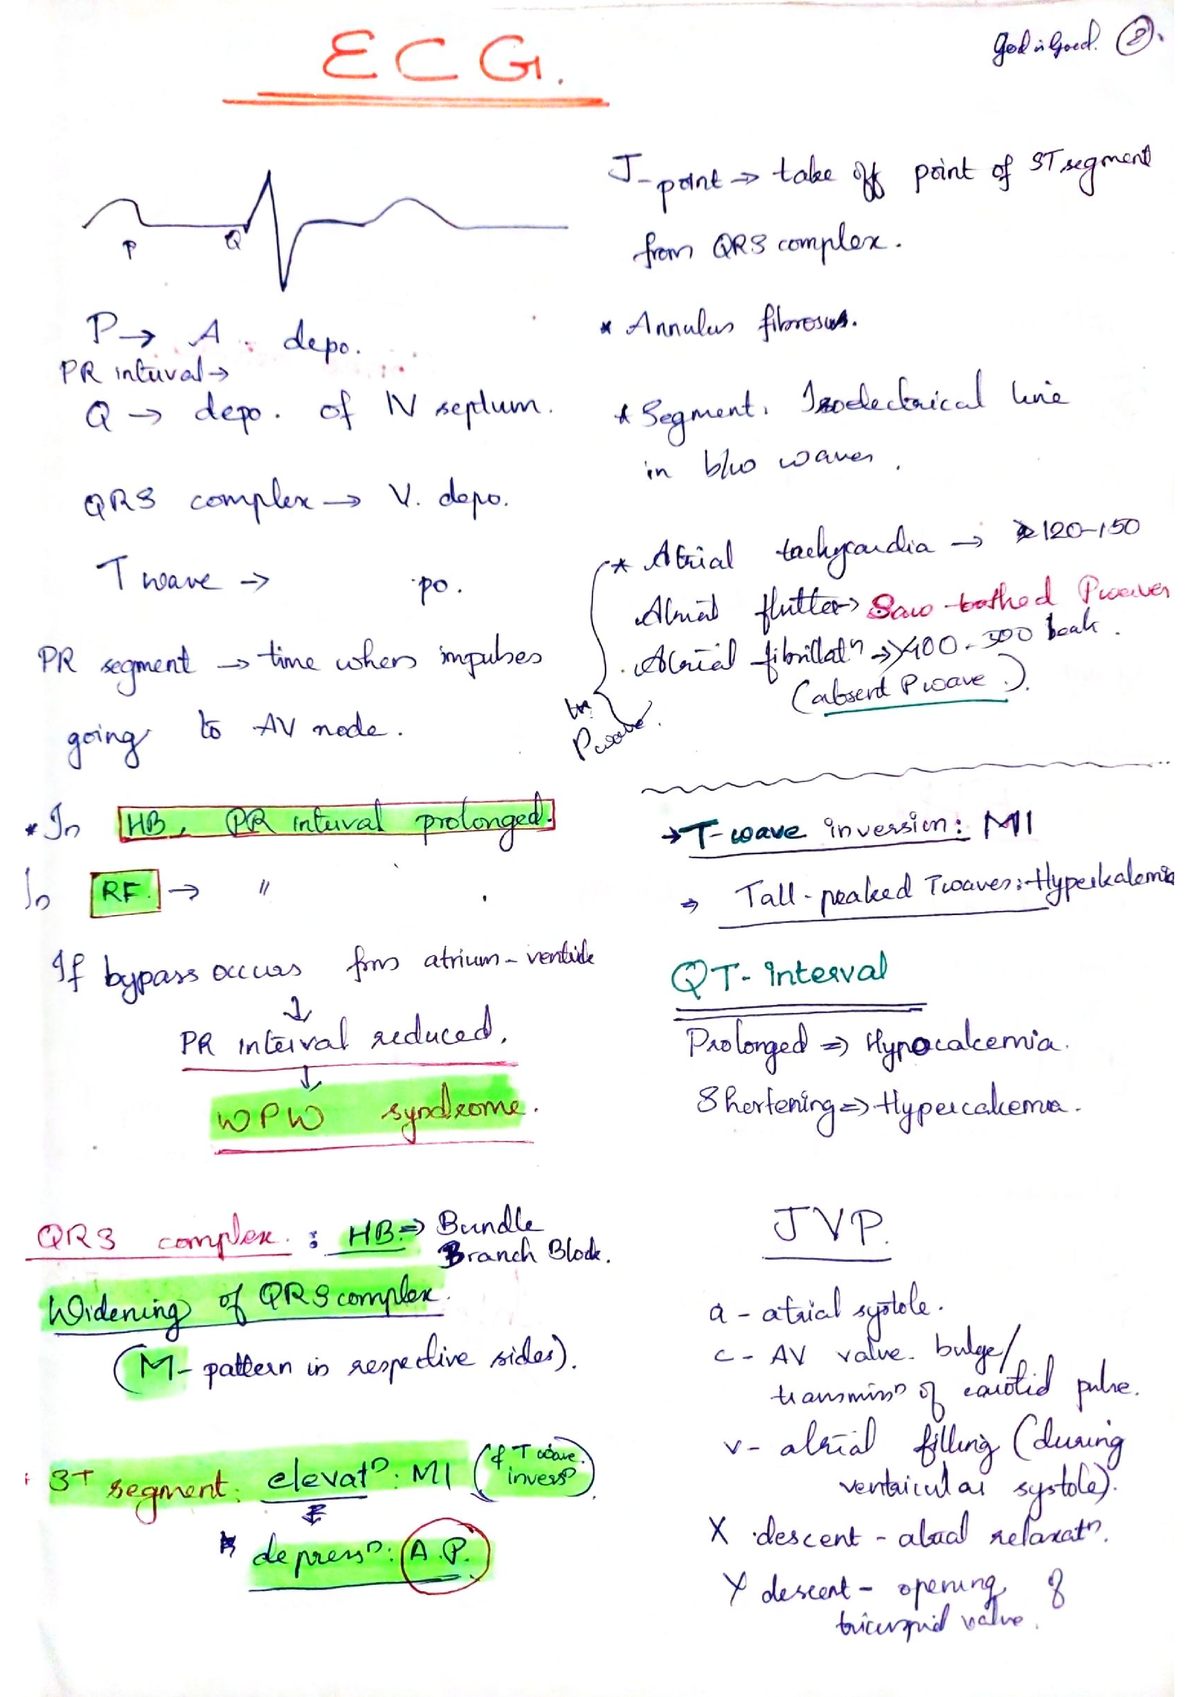 ECG.
God is Good. 8.
P
Q
P → A. depo.
PR interval →
Q → depo. of IV septum.
QRS complex → V. depo.
T wave → po.
PR segment → time when impulses
going to AV node.
* In HB, PR interval prolonged.
In RF. → "
If bypass occurs from atrium - ventricle
↓
PR interval reduced.
↓
WPW syndrome.
QRS complex. : HB ⇒ Bundle
Branch Block.
Widening of QRS complex.
(M- pattern in respective sides).
ST segment: elevatⁿ: MI (& T wave.
inversⁿ)
depressⁿ: A.P.
J-point → take off point of ST segment
from QRS complex.
* Annulus fibrosus.
* Segment. Isoelectrical line
in b/w waves.
* Atrial tachycardia → 120-150
Atrial flutter → Saw-toothed P waves
Atrial fibrillatⁿ → 400-500 beats.
(absent P wave.).
P wave.
→ T-wave inversion: MI
⇒ Tall-peaked T waves:- Hyperkalemia
QT- interval
Prolonged ⇒ Hypocalcemia.
Shortening ⇒ Hypercalcemia.
JVP.
a - atrial systole.
c - AV valve. bulge/
transmissⁿ of carotid pulse.
v - atrial filling (during
ventricular systole).
X descent - atrial relaxatⁿ.
Y descent - opening of
tricuspid valve.